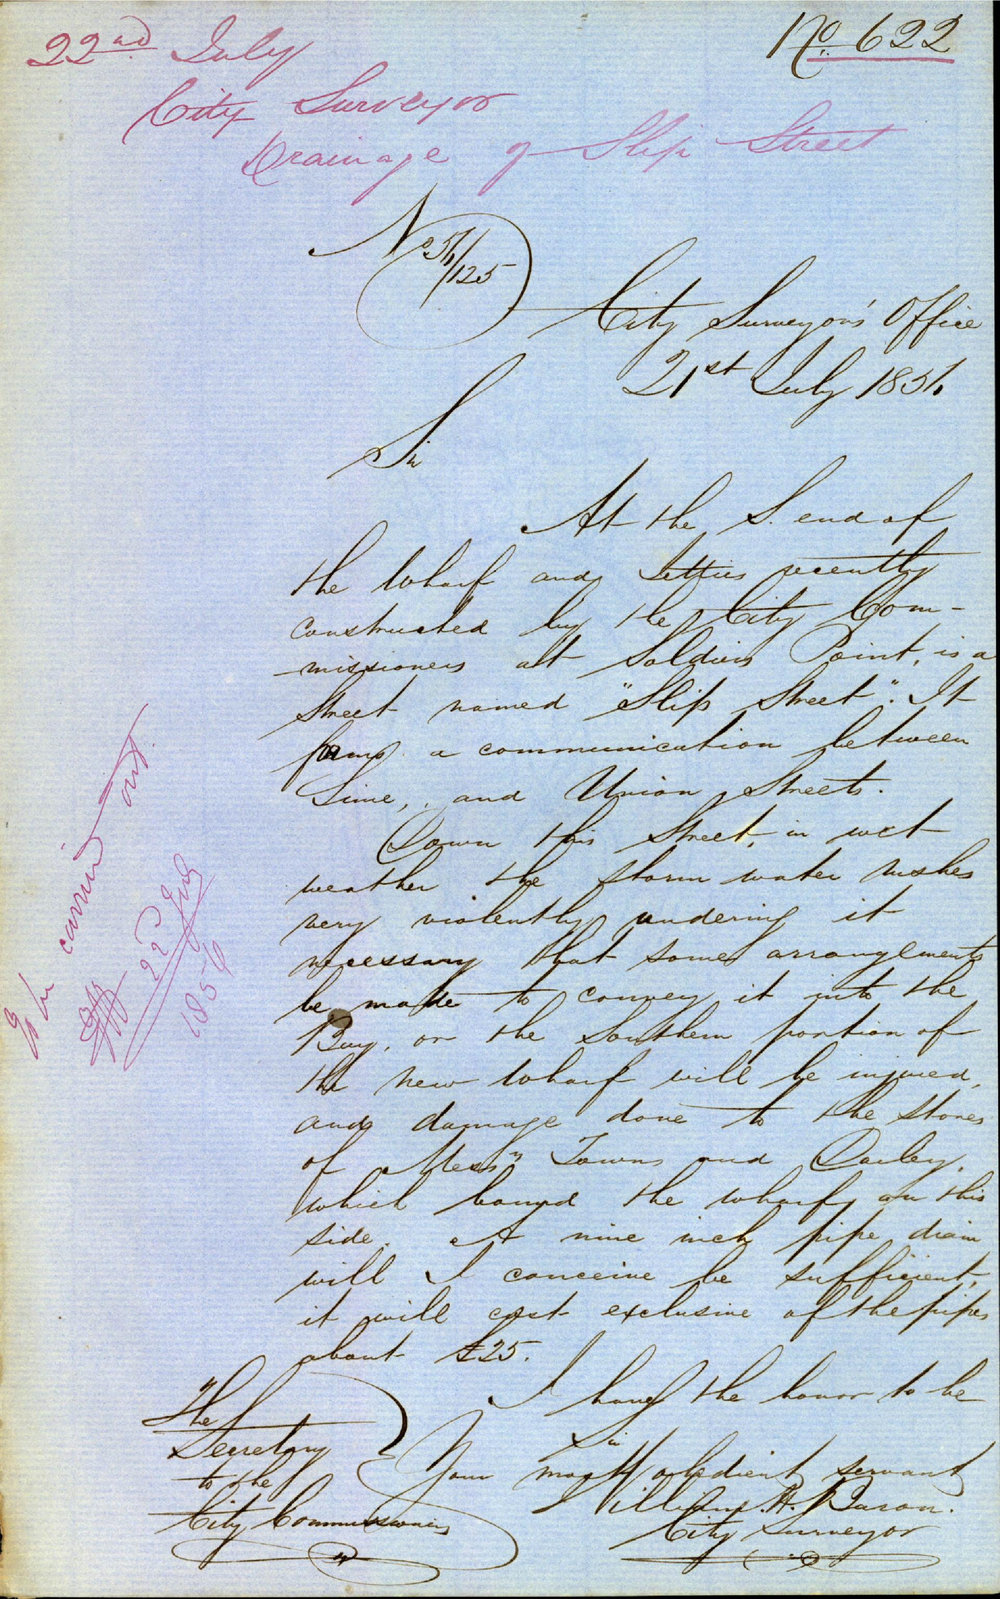 No. 622
22nd July
City Surveyor
Drainage of Slip Street
No 56/125
City Surveyor's Office
21st July 1856
Sir
At the S. end of
the Wharf and Jetties recently
constructed by the City Com-
missioners at Soldiers Point, is a
Street named "Slip Street". It
forms a communication between
Lime, and Union Streets.
Down this Street, in wet
weather the storm water rushes
very violently rendering it
necessary that some arrangements
be made to convey it into the
Bay, or the Southern portion of
the New Wharf will be injured,
and damage done to the Stores
of Messrs Towns and
which bound the wharf on this
side. A nine inch pipe drain
will I conceive be sufficient,
it will cost exclusive of the pipes
about £25.
I have the honor to be
Sir
Your most obedient servant
William. H.
City Surveyor
The
Secretary
to the
City Commissioners
To be carried out
22d July
1856